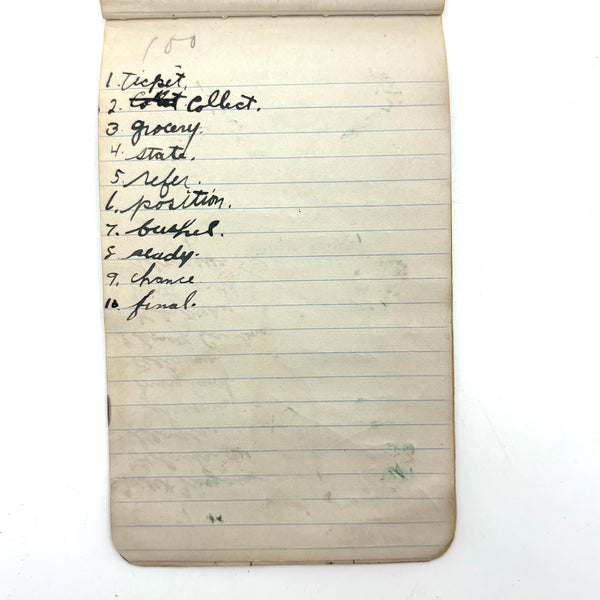 100
1. ticket.
2. Collect.
3. grocery.
4. state.
5. refer.
6. position.
7. bushel.
8. ready.
9. chance
10 final.